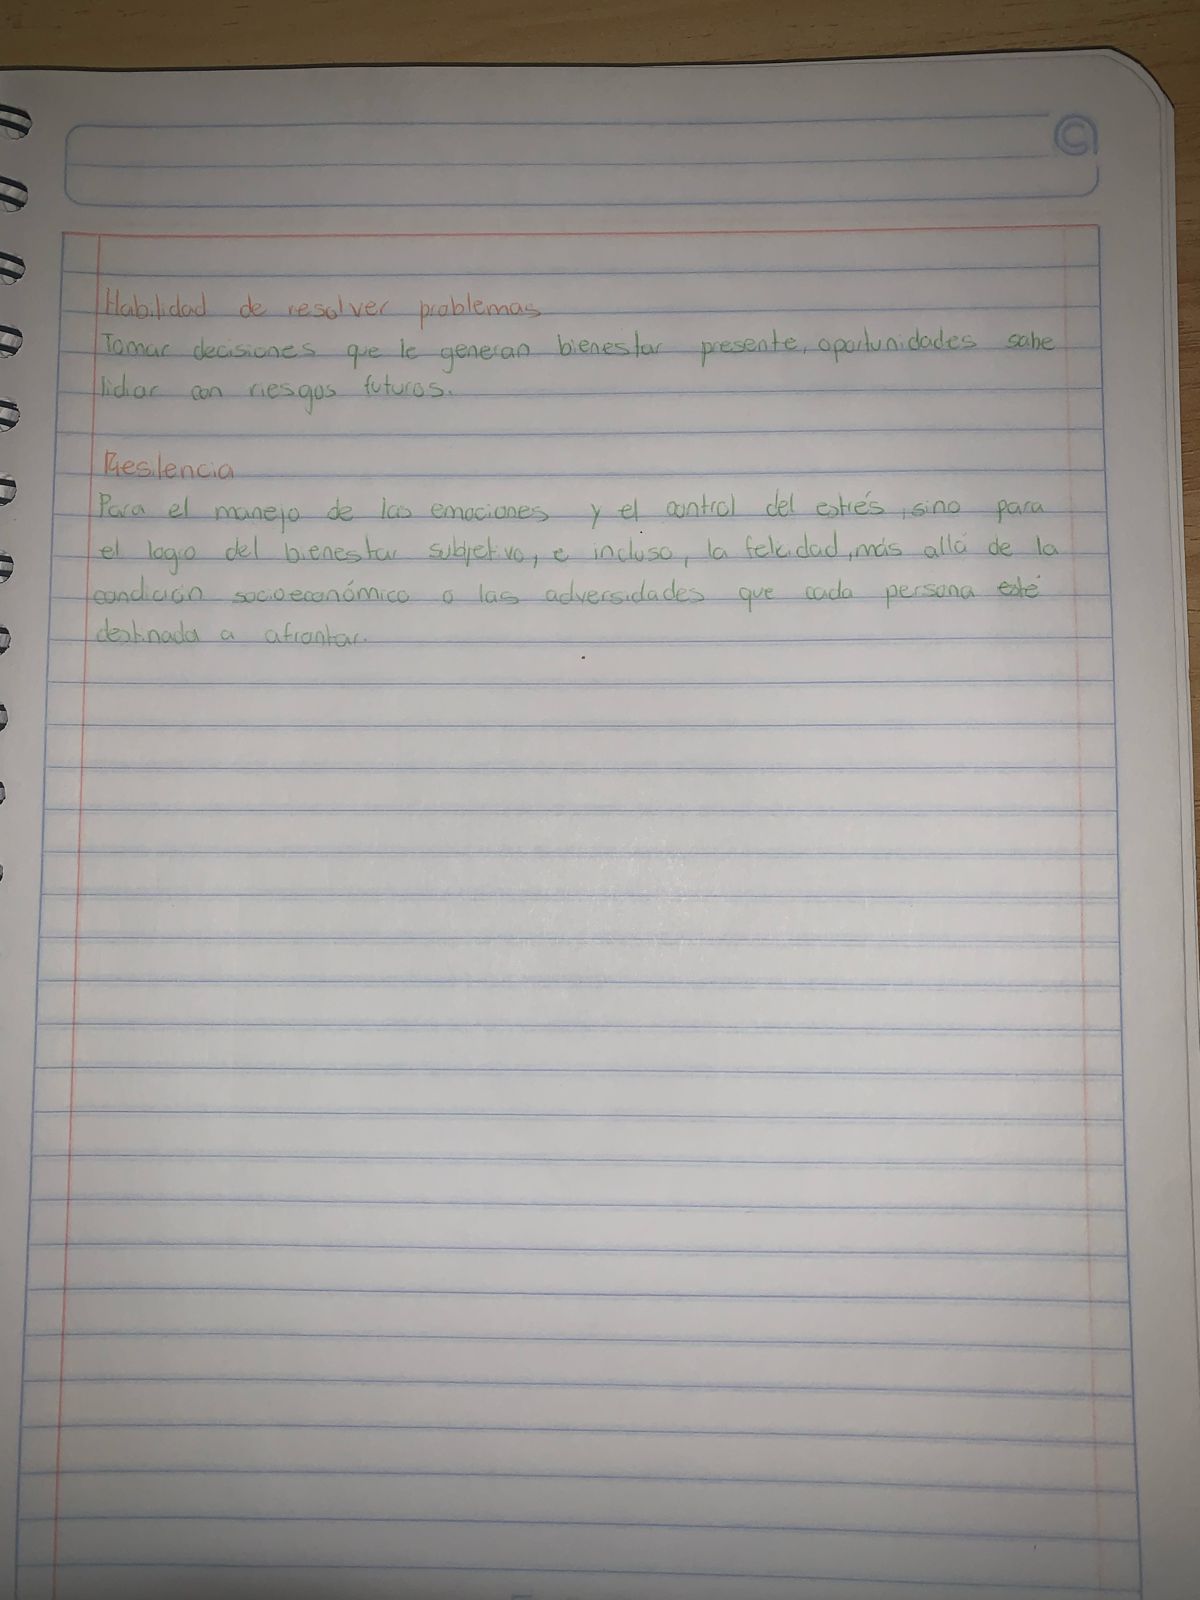 Habilidad de resolver problemas
Tomar decisiones que le generan bienestar presente, oportunidades sabe
lidiar con riesgos futuros.
Resilencia
Para el manejo de las emociones y el control del estrés, sino para
el logro del bienestar subjetivo, e incluso, la felicidad, más allá de la
condición socioeconómico o las adversidades que cada persona esté
destinada a afrontar.